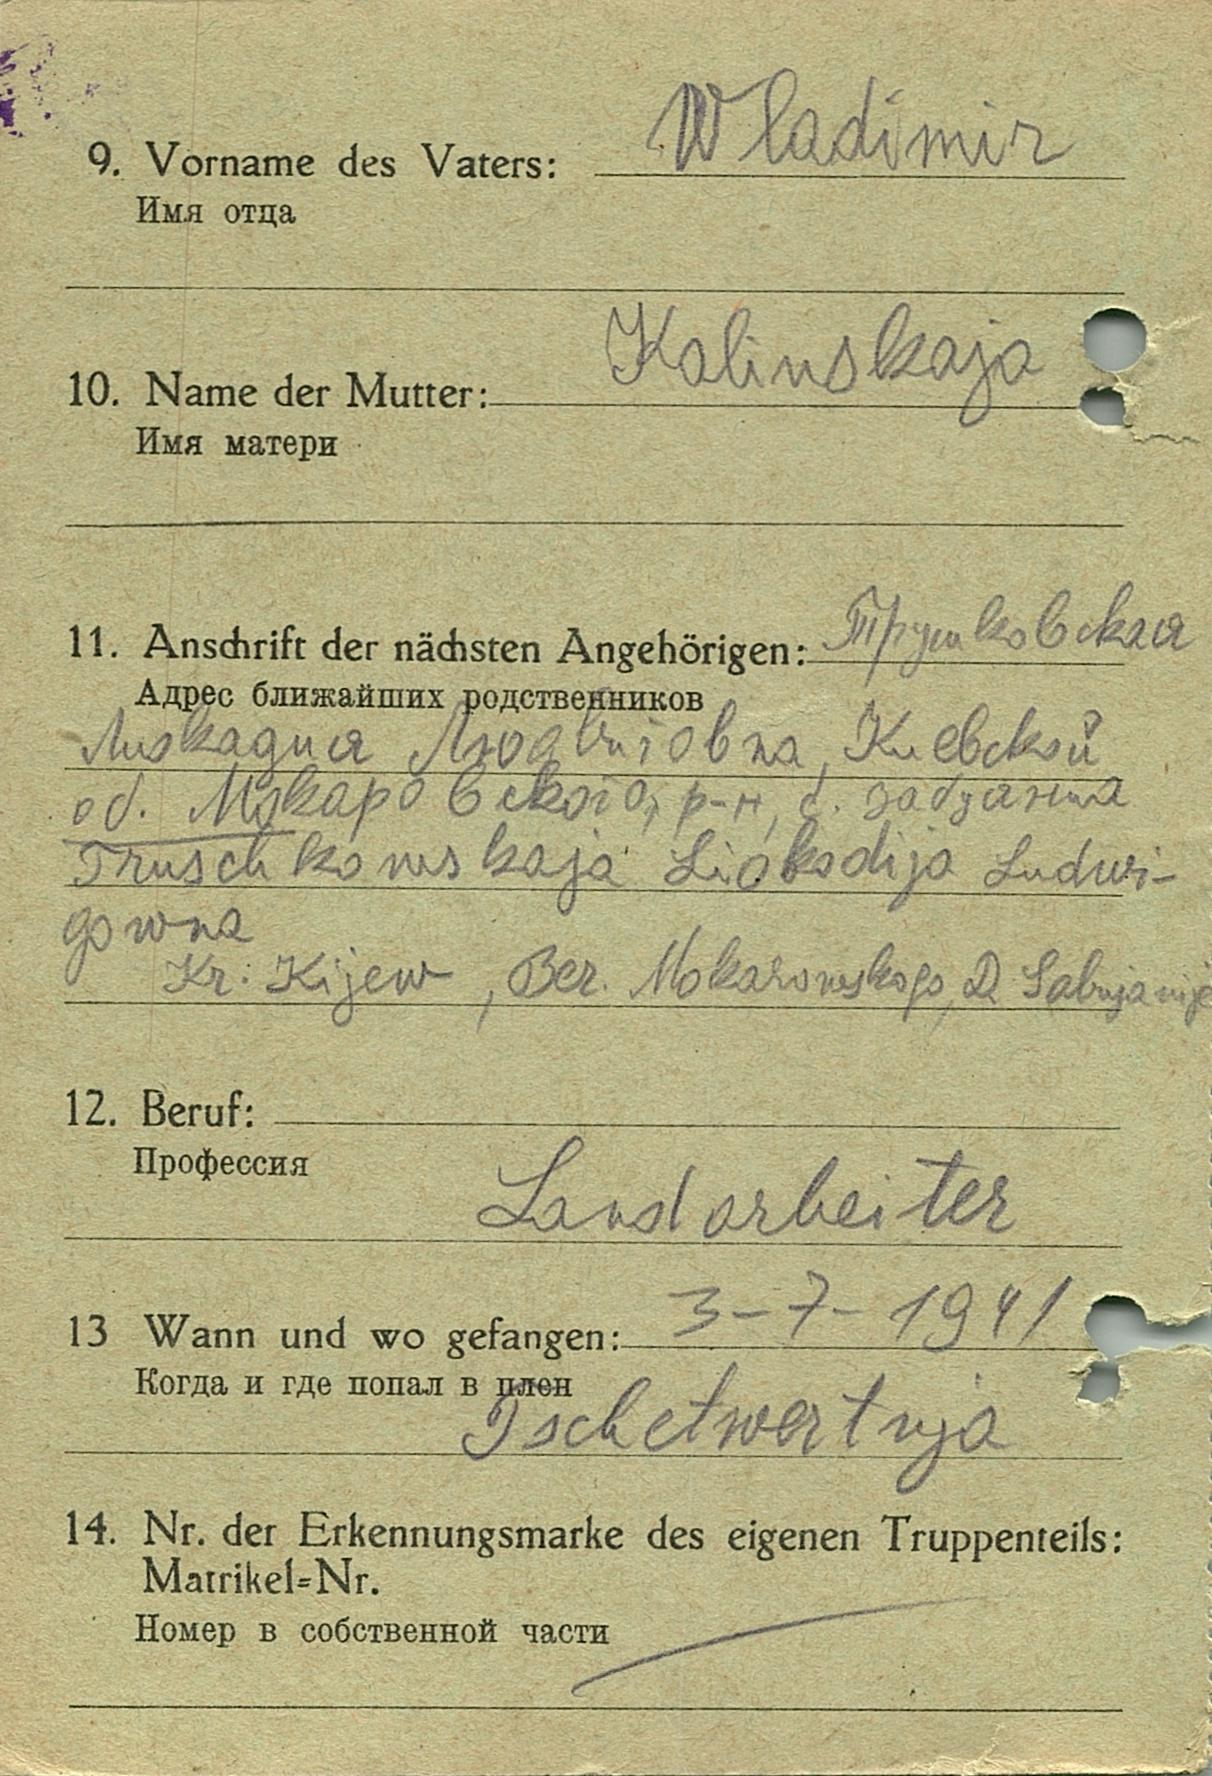 9. Vorname des Vaters: Wladimir
Имя отца
10. Name der Mutter: Kalinskaja
Имя матери
11. Anschrift der nächsten Angehörigen: Трушковская
Адрес ближайших родственников
Киевской
об. Макаровского, р-н, с.
Truschkowskaja Liokadija Ludwi-
gowna
Kr. Kijew, Ber. Mokarowskogo, D. Sabujanije
12. Beruf:
Профессия
Landarbeiter
13 Wann und wo gefangen: 3-7-1941
Когда и где попал в плен
Tschetwertnja
14. Nr. der Erkennungsmarke des eigenen Truppenteils:
Matrikel=Nr.
Номер в собственной части